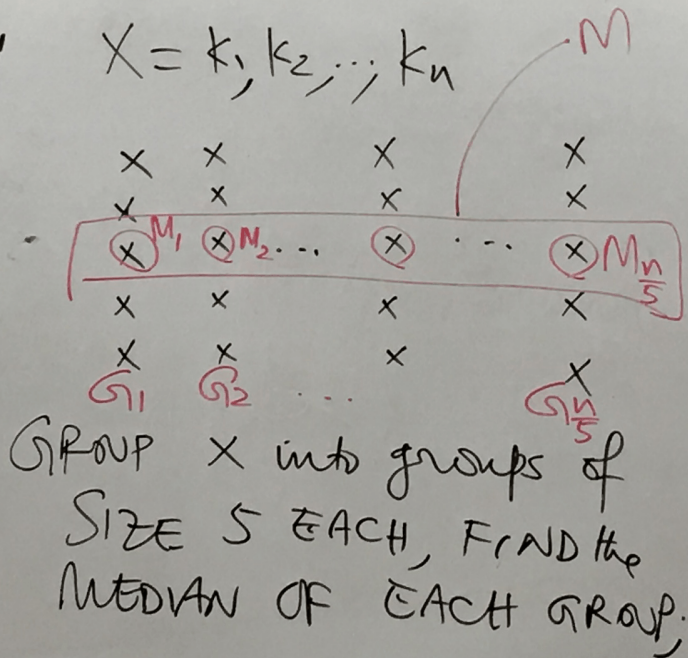 X = k1, k2, ..., kn
M
x x x x
x x x x
x M1 x M2 ... x ... x Mn/5
x x x x
x x x x
G1 G2 ... Gn/5
GROUP X into groups of
SIZE 5 EACH, FIND the
MEDIAN OF EACH GROUP;